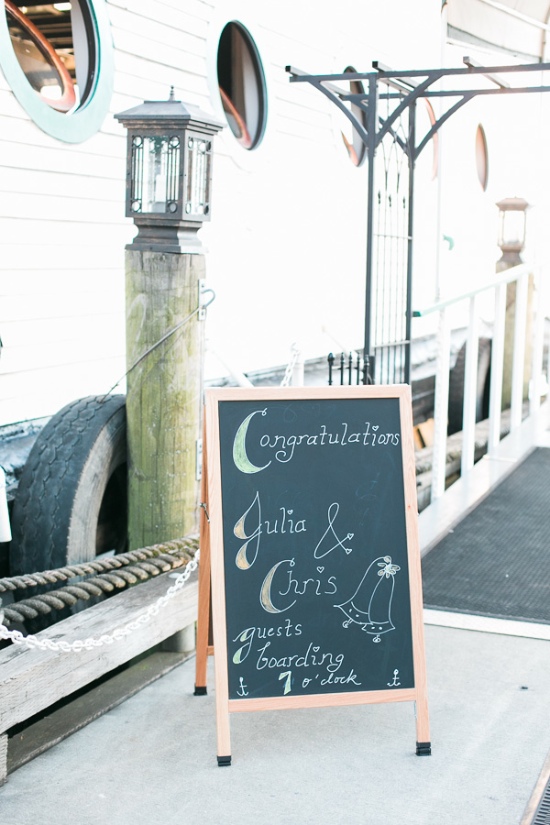 Congratulations
Julia &
Chris
guests
boarding
7 o'clock